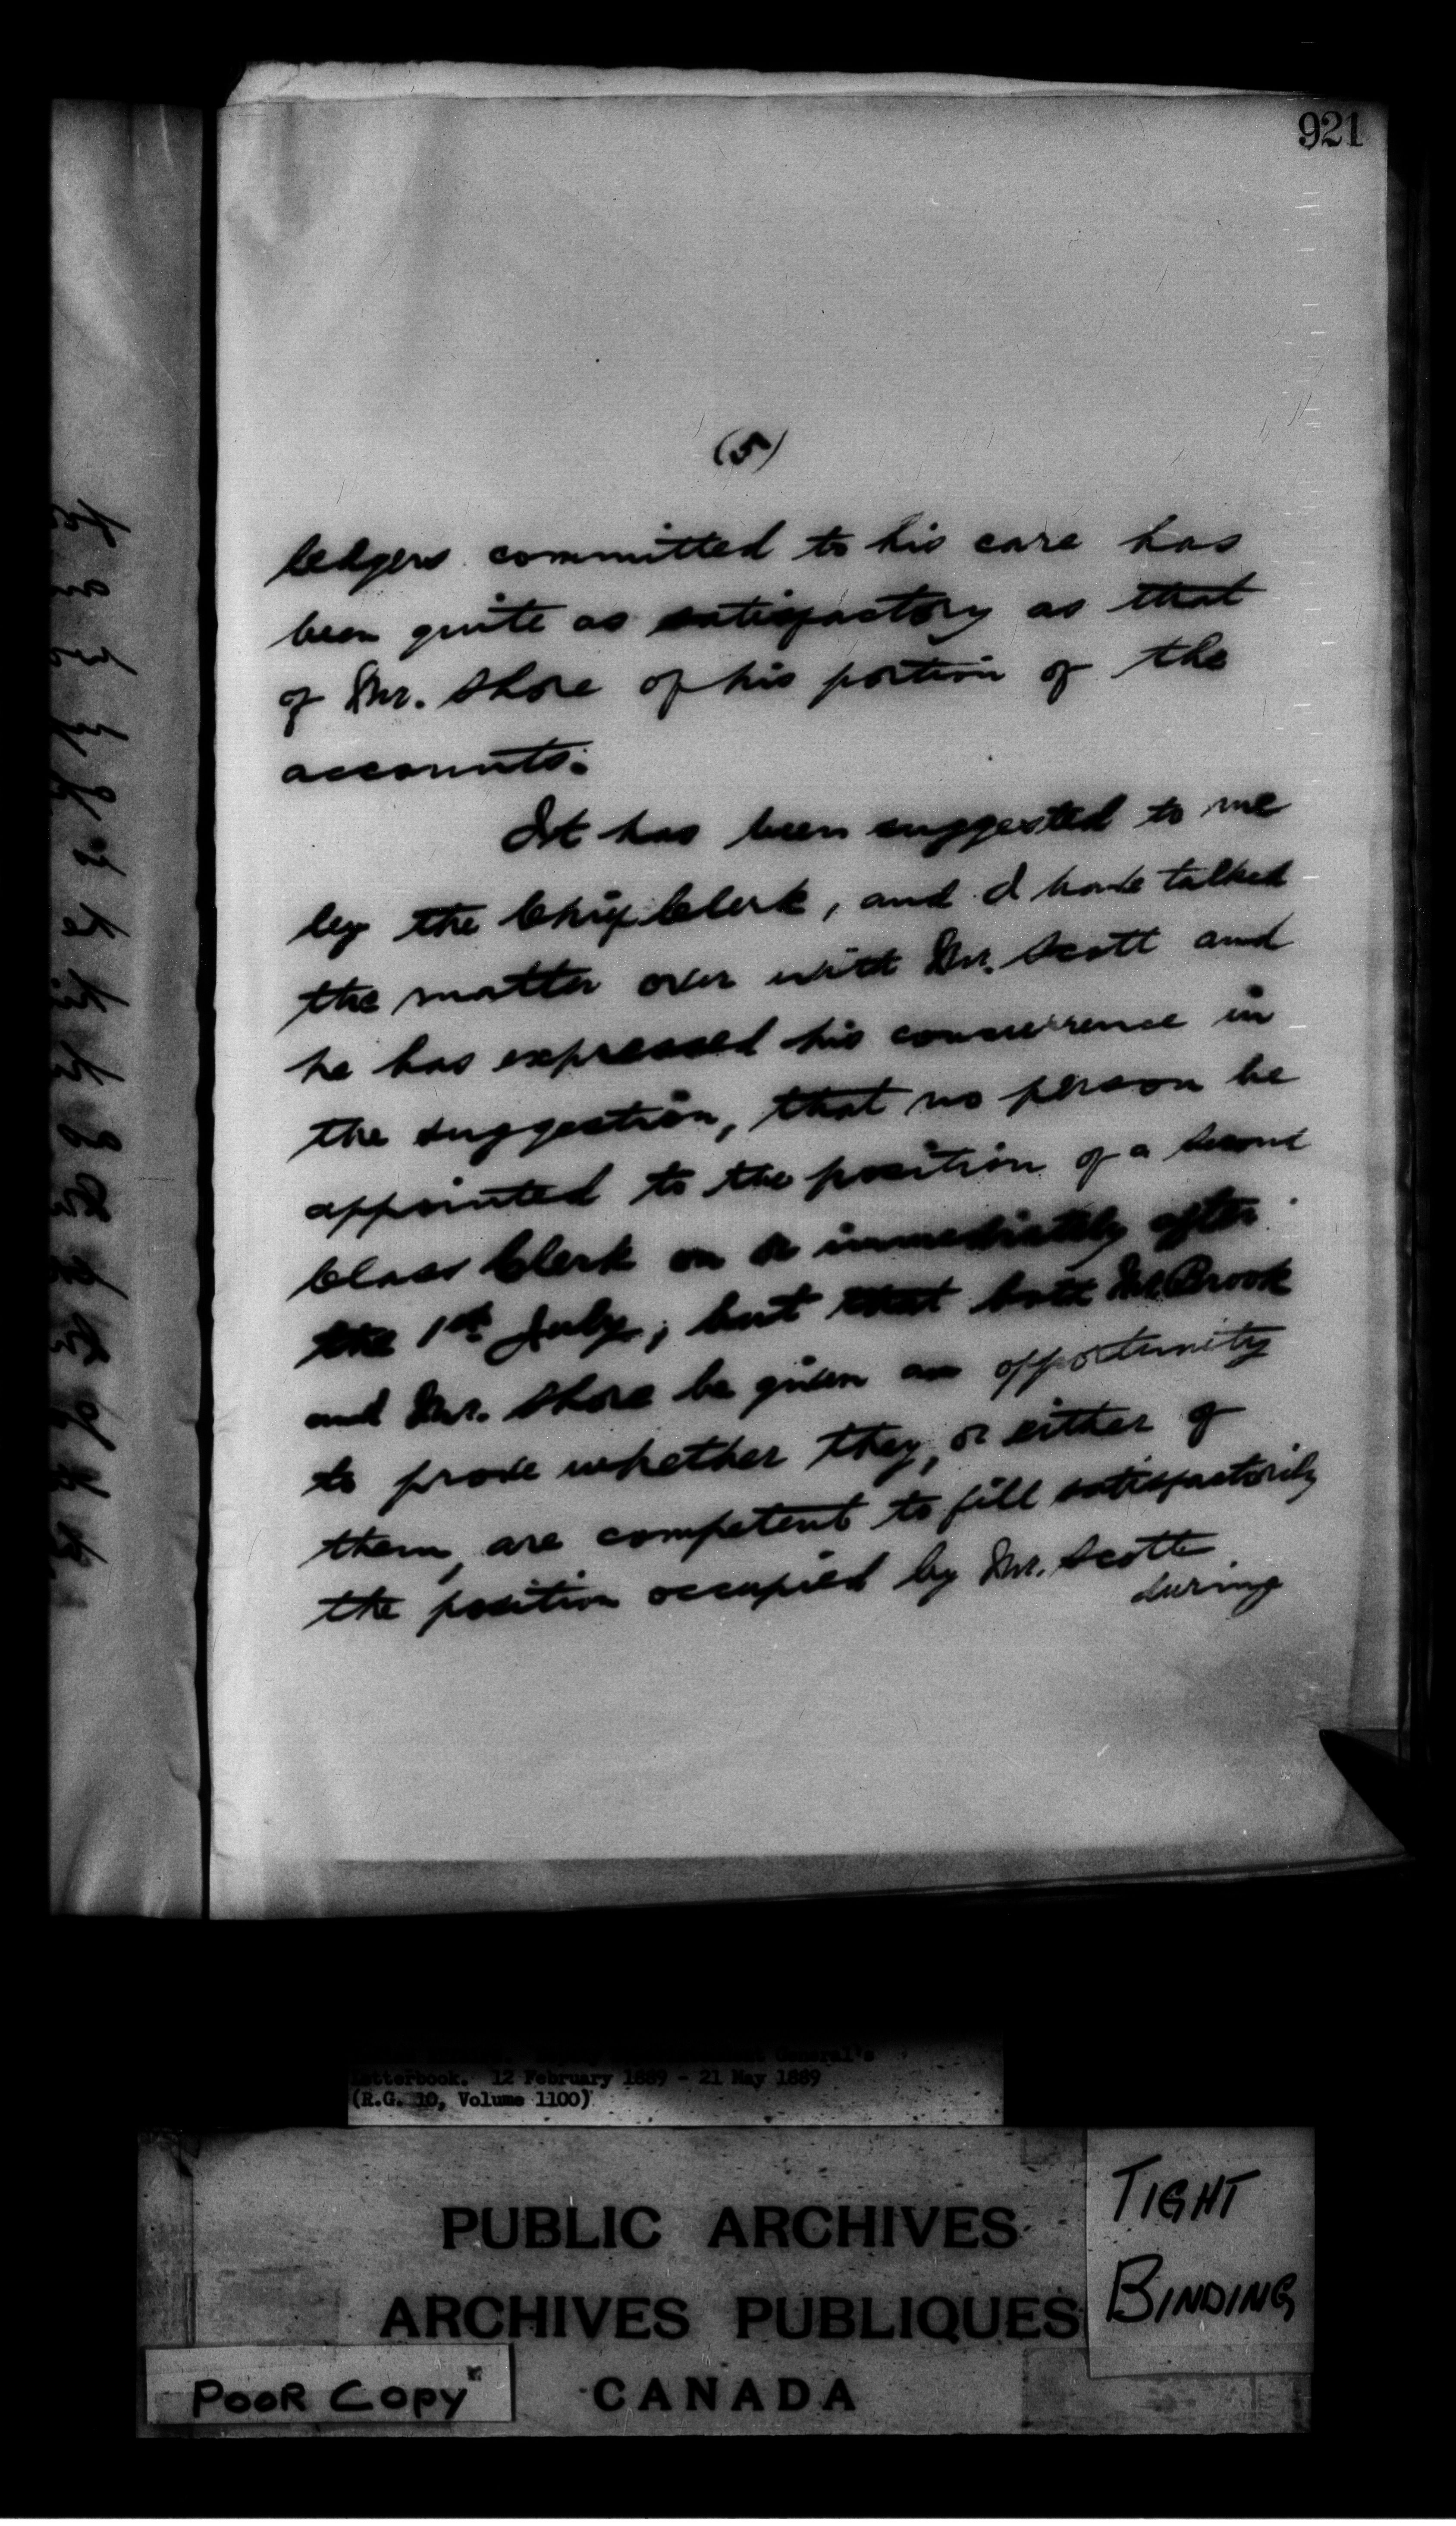 921
(5)
ledgers committed to his care has
been quite as satisfactory as that
of Mr. Shore of his portion of the
accounts.
It has been suggested to me
by the Chief Clerk, and I have talked
the matter over with Mr. Scott and
he has expressed his concurrence in
the suggestion, that no person be
appointed to the position of a Second
Class Clerk on or immediately after
the 1st July; but that both Mr. Brook
and Mr. Shore be given an opportunity
to prove whether they, or either of
them, are competent to fill satisfactorily
the position occupied by Mr. Scott
during
General's
Letterbook. 12 February 1889 - 21 May 1889
(R.G. 10, Volume 1100)
PUBLIC ARCHIVES
ARCHIVES PUBLIQUES
CANADA
TIGHT
BINDING
POOR COPY